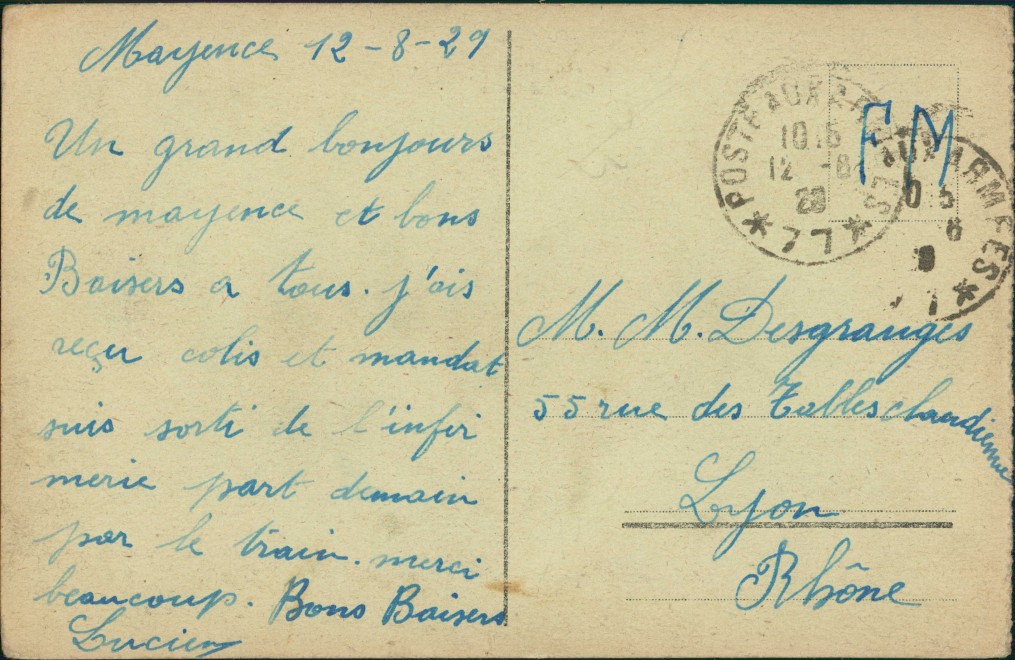 Mayence 12-8-29
Un grand bonjours
de mayence et bons
Baisers a tous. j'ais
reçu colis et mandat
suis sorti de l'infir
merie part demain
par le train. merci
beaucoup. Bons Baisers
Lucien
POSTE AUX ARMEES
1015
12 -8
29
FM
AUX ARMEES
M. M. Desgranges
55 rue des Tables claudienne
Lyon
Rhône